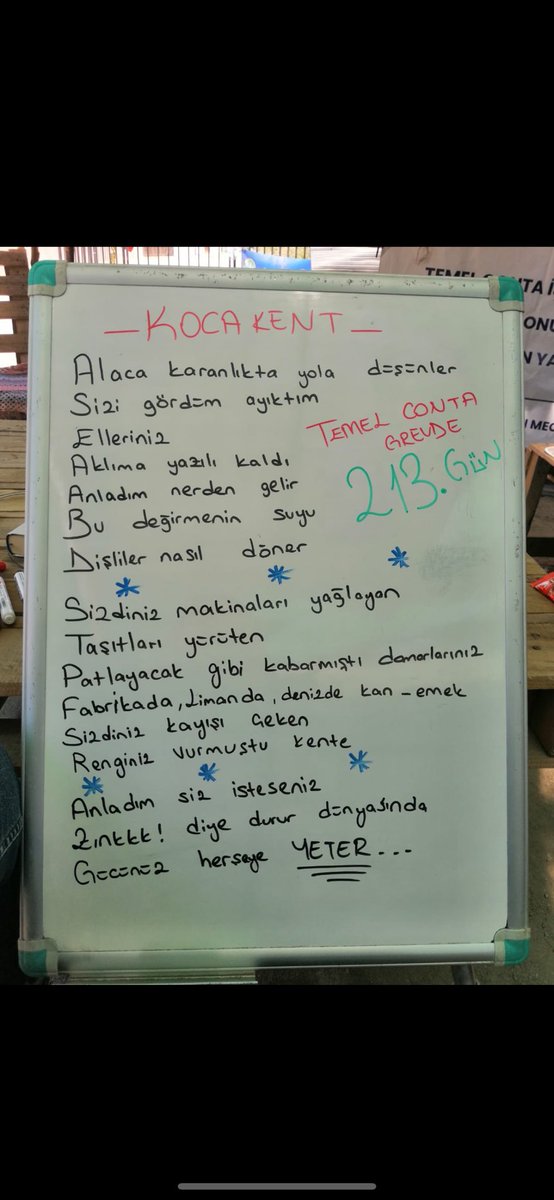 TEMEL CONTA İ
ONU
N YA
N MEC
— KOCA KENT —
Alaca karanlıkta yola düşenler
Sizi gördüm ayıktım
Elleriniz
Aklıma yazılı kaldı
Anladım nerden gelir
Bu değirmenin suyu
Dişliler nasıl döner
TEMEL CONTA
GREVDE
213. GÜN
Sizdiniz makinaları yağlayan
Taşıtları yürüten
Patlayacak gibi kabarmıştı damarlarınız
Fabrikada, Limanda, denizde kan - emek
Sizdiniz kayışı çeken
Renginiz vurmuştu kente
Anladım siz isteseniz
Zınkkk! diye durur dünyasında
Gücünüz herşeye YETER...